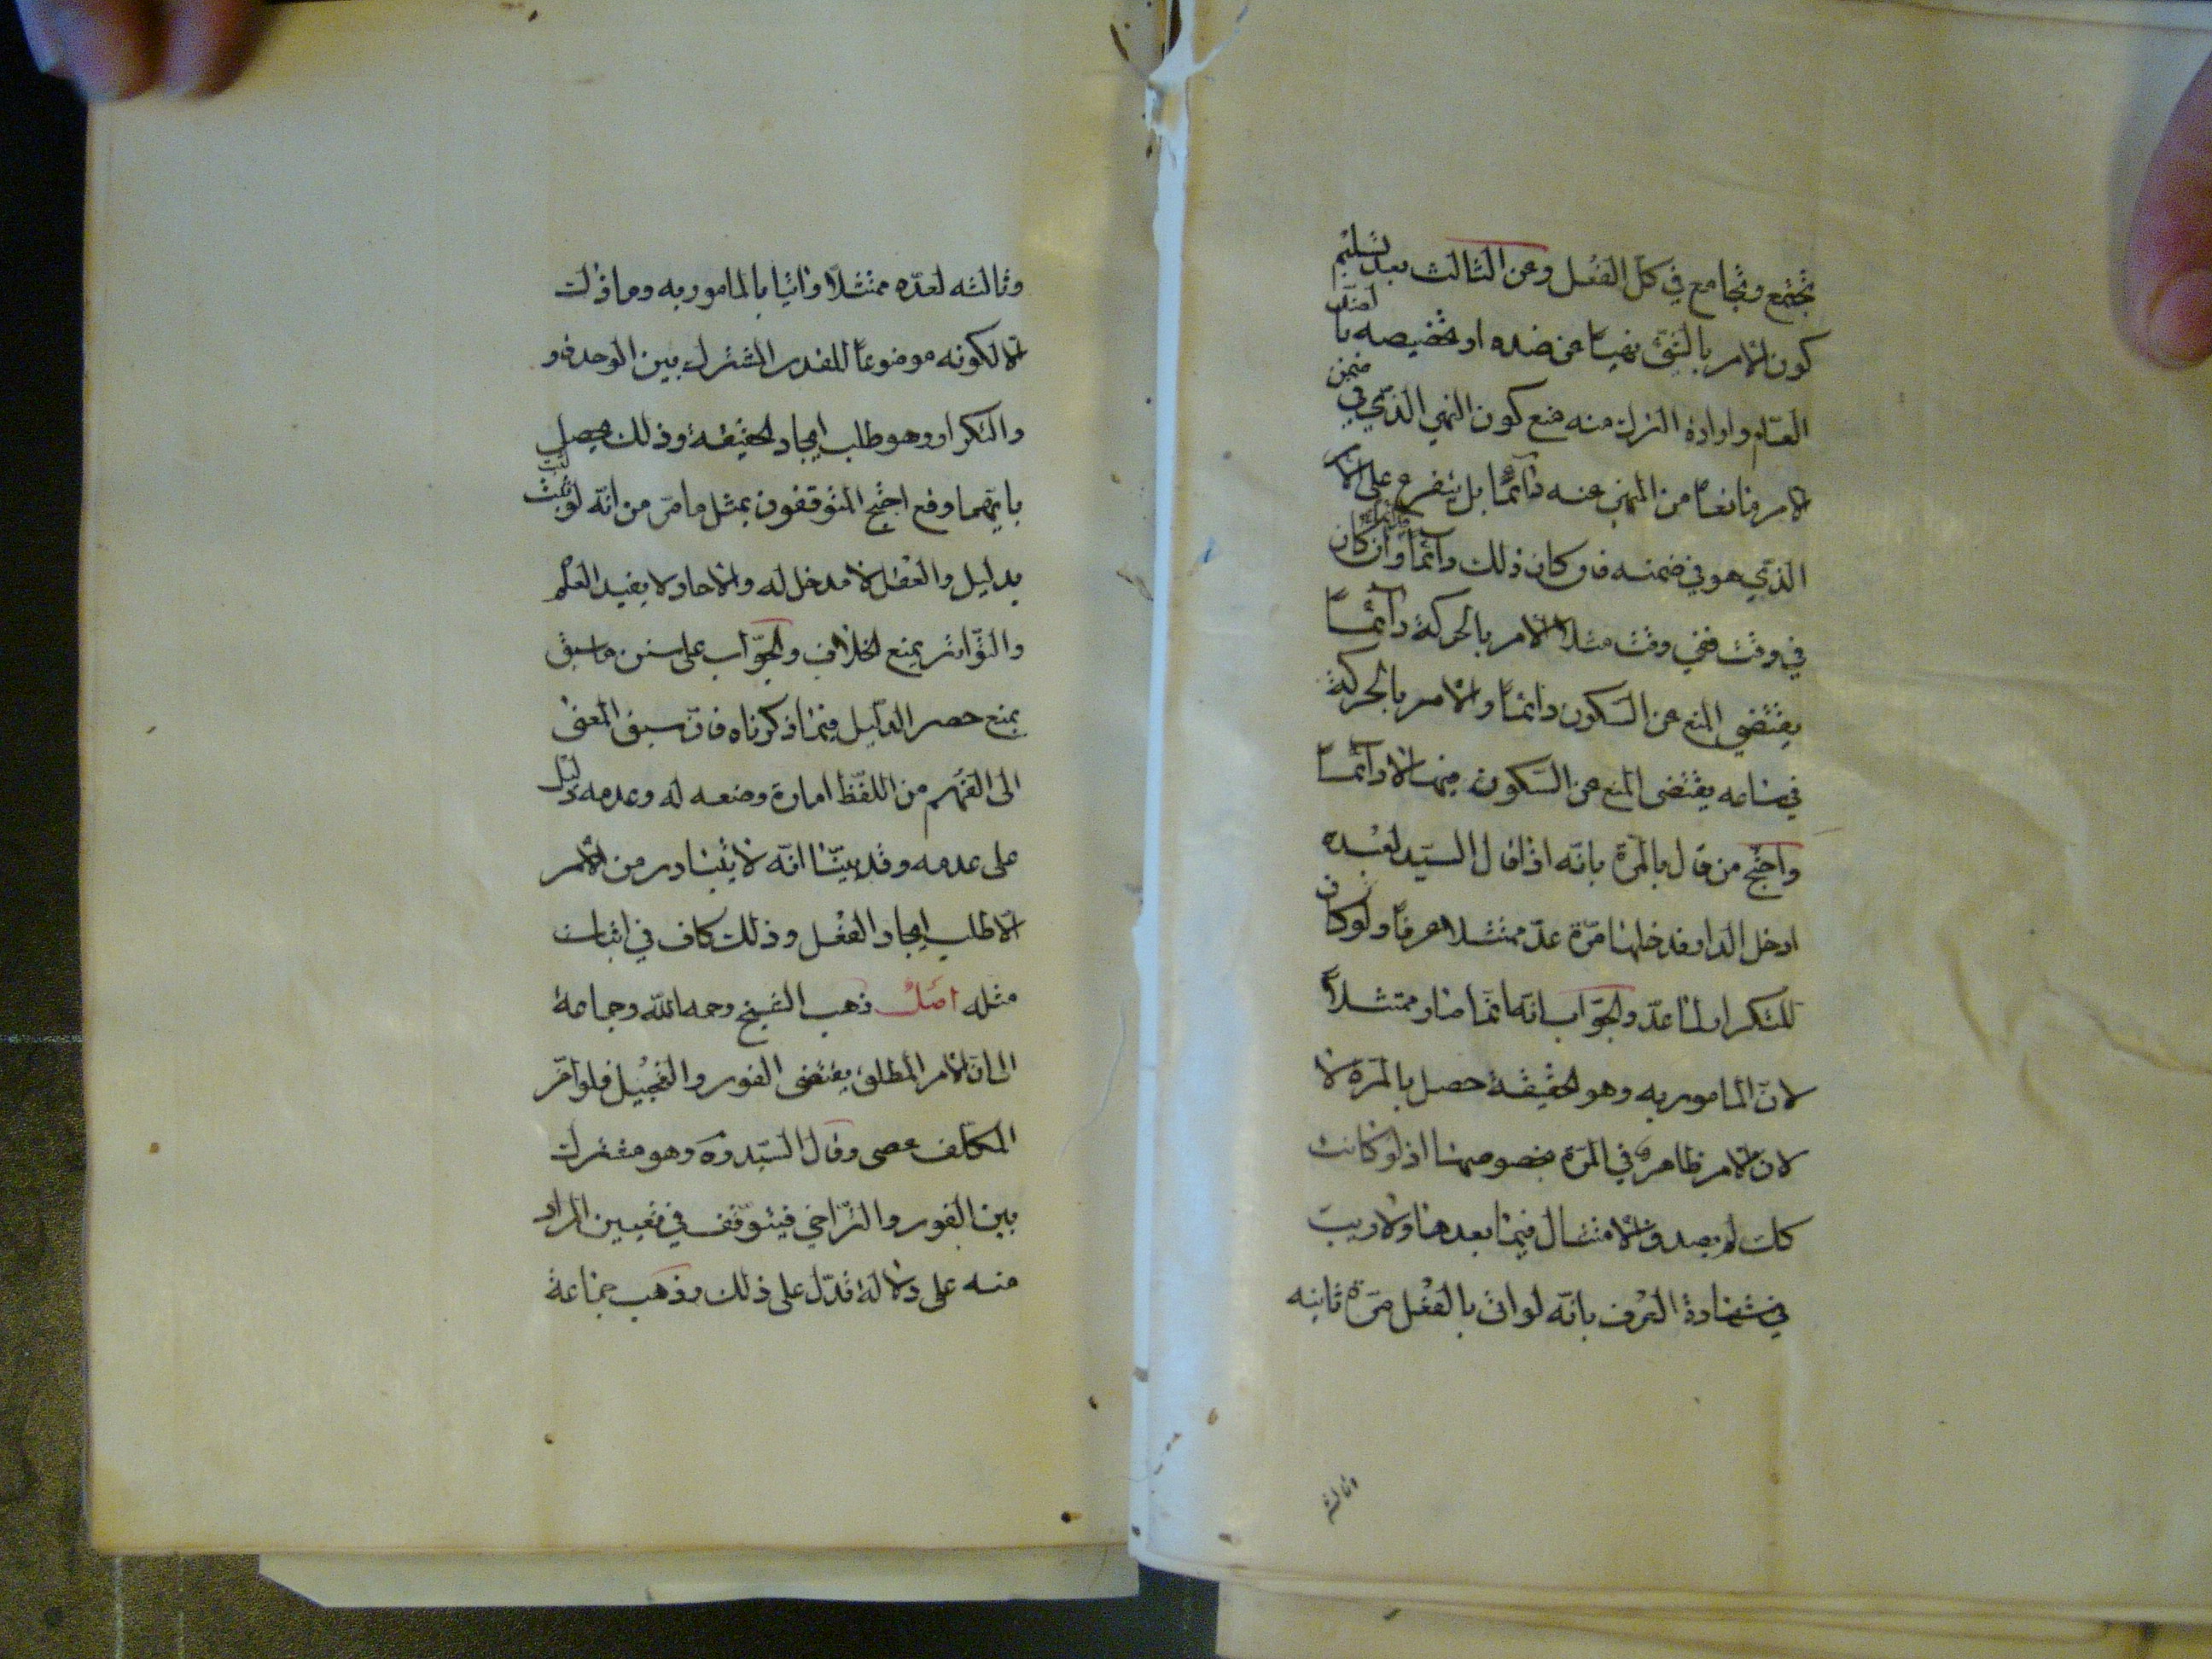 تجتمع وتجامع في كل الفعل وعن الثالث بعد تسليم
كون الامر بالشئ نهيا عن ضده او تخصيصه با لضد
العام وارادة الترك منه منع كون النهي الذي في ضمن
الامر مانعا من المنهي عنه دائما بل يتفرع على الامر
الذي هو في ضمنه فان كان ذلك دائما فدائما وان كان
في وقت ففي وقت مثلا الامر بالحركة دائما
يقتضي المنع من السكون دائما والامر بالحركة
في ساعه يقتضى المنع من السكون فيها لا دائما
واحتج من قال بالمرة بانه اذا قال السيد لعبده
ادخل الدار فدخلها مرة عد ممتثلا عرفا ولو كان
للتكرار لما عد والجواب انه انما صار ممتثلا
لان المامور به وهو الحقيقة حصل بالمرة لا
لان الامر ظاهر في المرة بخصوصها اذ لو كانت
كك لم يصدق الامتثال فيما بعدها ولا ريب
في شهادة العرف بانه لو اتى بالفعل مرة ثانيه
وثالثه
وثالثه لعده ممتثلا واتيا بالمامور به وما ذلك
الا لكونه موضوعا للقدر المشترك بين الوحدة و
والتكرار وهو طلب ايجاد الحقيقة وذلك يحصل
بايهما وقع احتج المتوقفون بمثل ما مر من انه لو ثبت لثبت
بدليل والعقل لا مدخل له والاحاد لا يفيد العلم
والتواتر يمنع الخلاف والجواب على سنن ما سبق
بمنع حصر الدليل فيما ذكرناه فان سبق المعنى
الى الفهم من اللفظ امارة وضعه له وعدمه دليل
على عدمه وقد بينا انه لا يتبادر من الامر
الا طلب ايجاد الفعل وذلك كاف في اثبات
مثله اصل ذهب الشيخ رحمه الله وجماعة
الى ان الامر المطلق يقتضى الفور والتعجيل فلو اخر
المكلف عصى وقال السيد ره وهو مشترك
بين الفور والتراخي فيتوقف في تعيين المراد
منه على دلالة تدل على ذلك وذهب جماعة